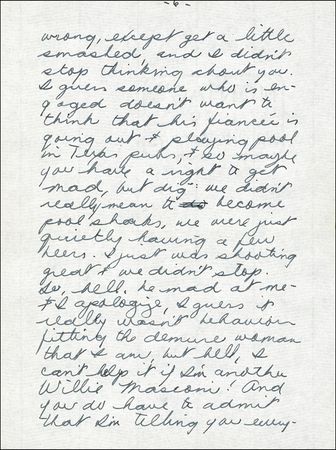 -6-
wrong, except get a little
smashed, and I didn't
stop thinking about you.
I guess someone who is en-
gaged doesn't want to
think that his fianceé is
going out & playing pool
in Texas pubs, & so maybe
you have a right to get
mad, but dig - we didn't
really mean to do become
pool sharks, we were just
quietly having a few
beers. I just was shooting
great & we didn't stop.
So, hell, be mad at me -
& I apologize, I guess it
really wasn't behavior
fitting the demure woman
that I am, but hell, I
can't help it if I'm another
Willie Masconi! And
you do have to admit
that I'm telling you every-